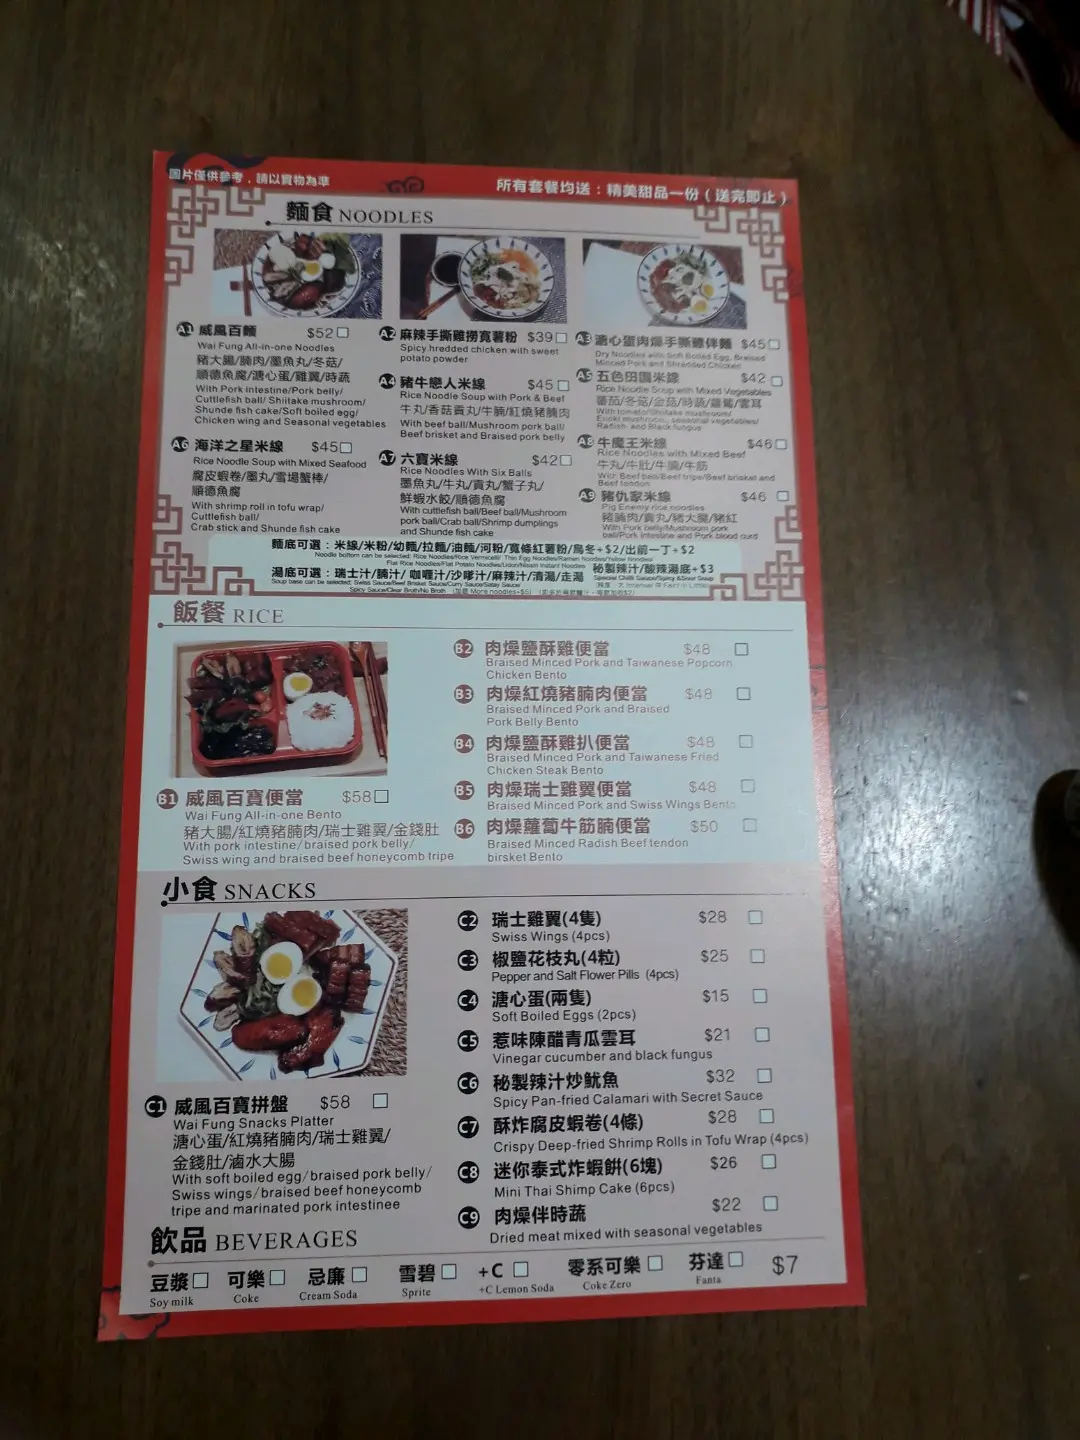 圖片僅供參考，請以實物為準
所有套餐均送：精美甜品一份（送完即止）
麵食 NOODLES
A1 威風百麵 $52
Wai Fung All-in-one Noodles
豬大腸/腩肉/墨魚丸/冬菇/
順德魚腐/溏心蛋/雞翼/時蔬
With Pork intestine/Pork belly/
Cuttlefish ball/ Shiitake mushroom/
Shunde fish cake/Soft boiled egg/
Chicken wing and Seasonal vegetables
A2 麻辣手撕雞撈寬薯粉 $39
Spicy hredded chicken with sweet
potato powder
A3 溏心蛋肉燥手撕雞伴麵 $45
Dry Noodles with Soft Boiled Egg, Braised
Minced Pork and Shredded Chicken
A4 豬牛戀人米線 $45
Rice Noodle Soup with Pork & Beef
牛丸/香菇貢丸/牛腩/紅燒豬腩肉
With beef ball/Mushroom pork ball/
Beef brisket and Braised pork belly
A5 五色田園米線 $42
Rice Noodle Soup with Mixed Vegetables
番茄/冬菇/金菇/時蔬/蘿蔔/雲耳
With tomato/Shiitake mushroom/
Enoki mushroom, seasonal vegetables/
Radish and Black fungus
A6 海洋之星米線 $45
Rice Noodle Soup with Mixed Seafood
腐皮蝦卷/墨丸/雪場蟹棒/
順德魚腐
With shrimp roll in tofu wrap/
Cuttlefish ball/
Crab stick and Shunde fish cake
A7 六寶米線 $42
Rice Noodles With Six Balls
墨魚丸/牛丸/貢丸/蟹子丸/
鮮蝦水餃/順德魚腐
With cuttlefish ball/Beef ball/Mushroom
pork ball/Crab ball/Shrimp dumplings
and Shunde fish cake
A8 牛魔王米線 $46
Rice Noodles with Mixed Beef
牛丸/牛肚/牛腩/牛筋
With Beef ball/Beef tripe/Beef brisket and
Beef tendon
A9 豬仇家米線 $46
Pig Enemy rice noodles
豬腩肉/貢丸/豬大腸/豬紅
With Pork belly/Mushroom pork
ball/Pork intestine and Pork blood curd
麵底可選：米線/米粉/幼麵/拉麵/油麵/河粉/寬條紅薯粉/烏冬+$2/出前一丁+$2
Noodle bottom can be selected: Rice Noodles/Rice Vermicelli/ Thin Egg Noodles/Ramen Noodles/Yellow Noodles
Flat Rice Noodles/Flat Potato Noodles/Udon/Nissin Instant Noodles
湯底可選：瑞士汁/腩汁/咖喱汁/沙嗲汁/麻辣汁/清湯/走湯
Soup base can be selected: Swiss Sauce/Beef Brisket Sauce/Curry Sauce/Satay Sauce/
Spicy Sauce/Clear Broth/No Broth
秘製辣汁/酸辣湯底+$3
飯餐 RICE
B1 威風百寶便當 $58
Wai Fung All-in-one Bento
豬大腸/紅燒豬腩肉/瑞士雞翼/金錢肚
With pork intestine/braised pork belly/
Swiss wing and braised beef honeycomb tripe
B2 肉燥鹽酥雞便當 $48
Braised Minced Pork and Taiwanese Popcorn
Chicken Bento
B3 肉燥紅燒豬腩肉便當 $48
Braised Minced Pork and Braised
Pork Belly Bento
B4 肉燥鹽酥雞扒便當 $48
Braised Minced Pork and Taiwanese Fried
Chicken Steak Bento
B5 肉燥瑞士雞翼便當 $48
Braised Minced Pork and Swiss Wings Bento
B6 肉燥蘿蔔牛筋腩便當 $50
Braised Minced Radish Beef tendon
birsket Bento
小食 SNACKS
C1 威風百寶拼盤 $58
Wai Fung Snacks Platter
溏心蛋/紅燒豬腩肉/瑞士雞翼/
金錢肚/滷水大腸
With soft boiled egg/braised pork belly/
Swiss wings/braised beef honeycomb
tripe and marinated pork intestinee
C2 瑞士雞翼(4隻) $28
Swiss Wings (4pcs)
C3 椒鹽花枝丸(4粒) $25
Pepper and Salt Flower Pills (4pcs)
C4 溏心蛋(兩隻) $15
Soft Boiled Eggs (2pcs)
C5 惹味陳醋青瓜雲耳 $21
Vinegar cucumber and black fungus
C6 秘製辣汁炒魷魚 $32
Spicy Pan-fried Calamari with Secret Sauce
C7 酥炸腐皮蝦卷(4條) $28
Crispy Deep-fried Shrimp Rolls in Tofu Wrap (4pcs)
C8 迷你泰式炸蝦餅(6塊) $26
Mini Thai Shimp Cake (6pcs)
C9 肉燥伴時蔬 $22
Dried meat mixed with seasonal vegetables
飲品 BEVERAGES
豆漿 可樂 忌廉 雪碧 +C 零系可樂 芬達 $7
Soy milk Coke Cream Soda Sprite +C Lemon Soda Coke Zero Fanta